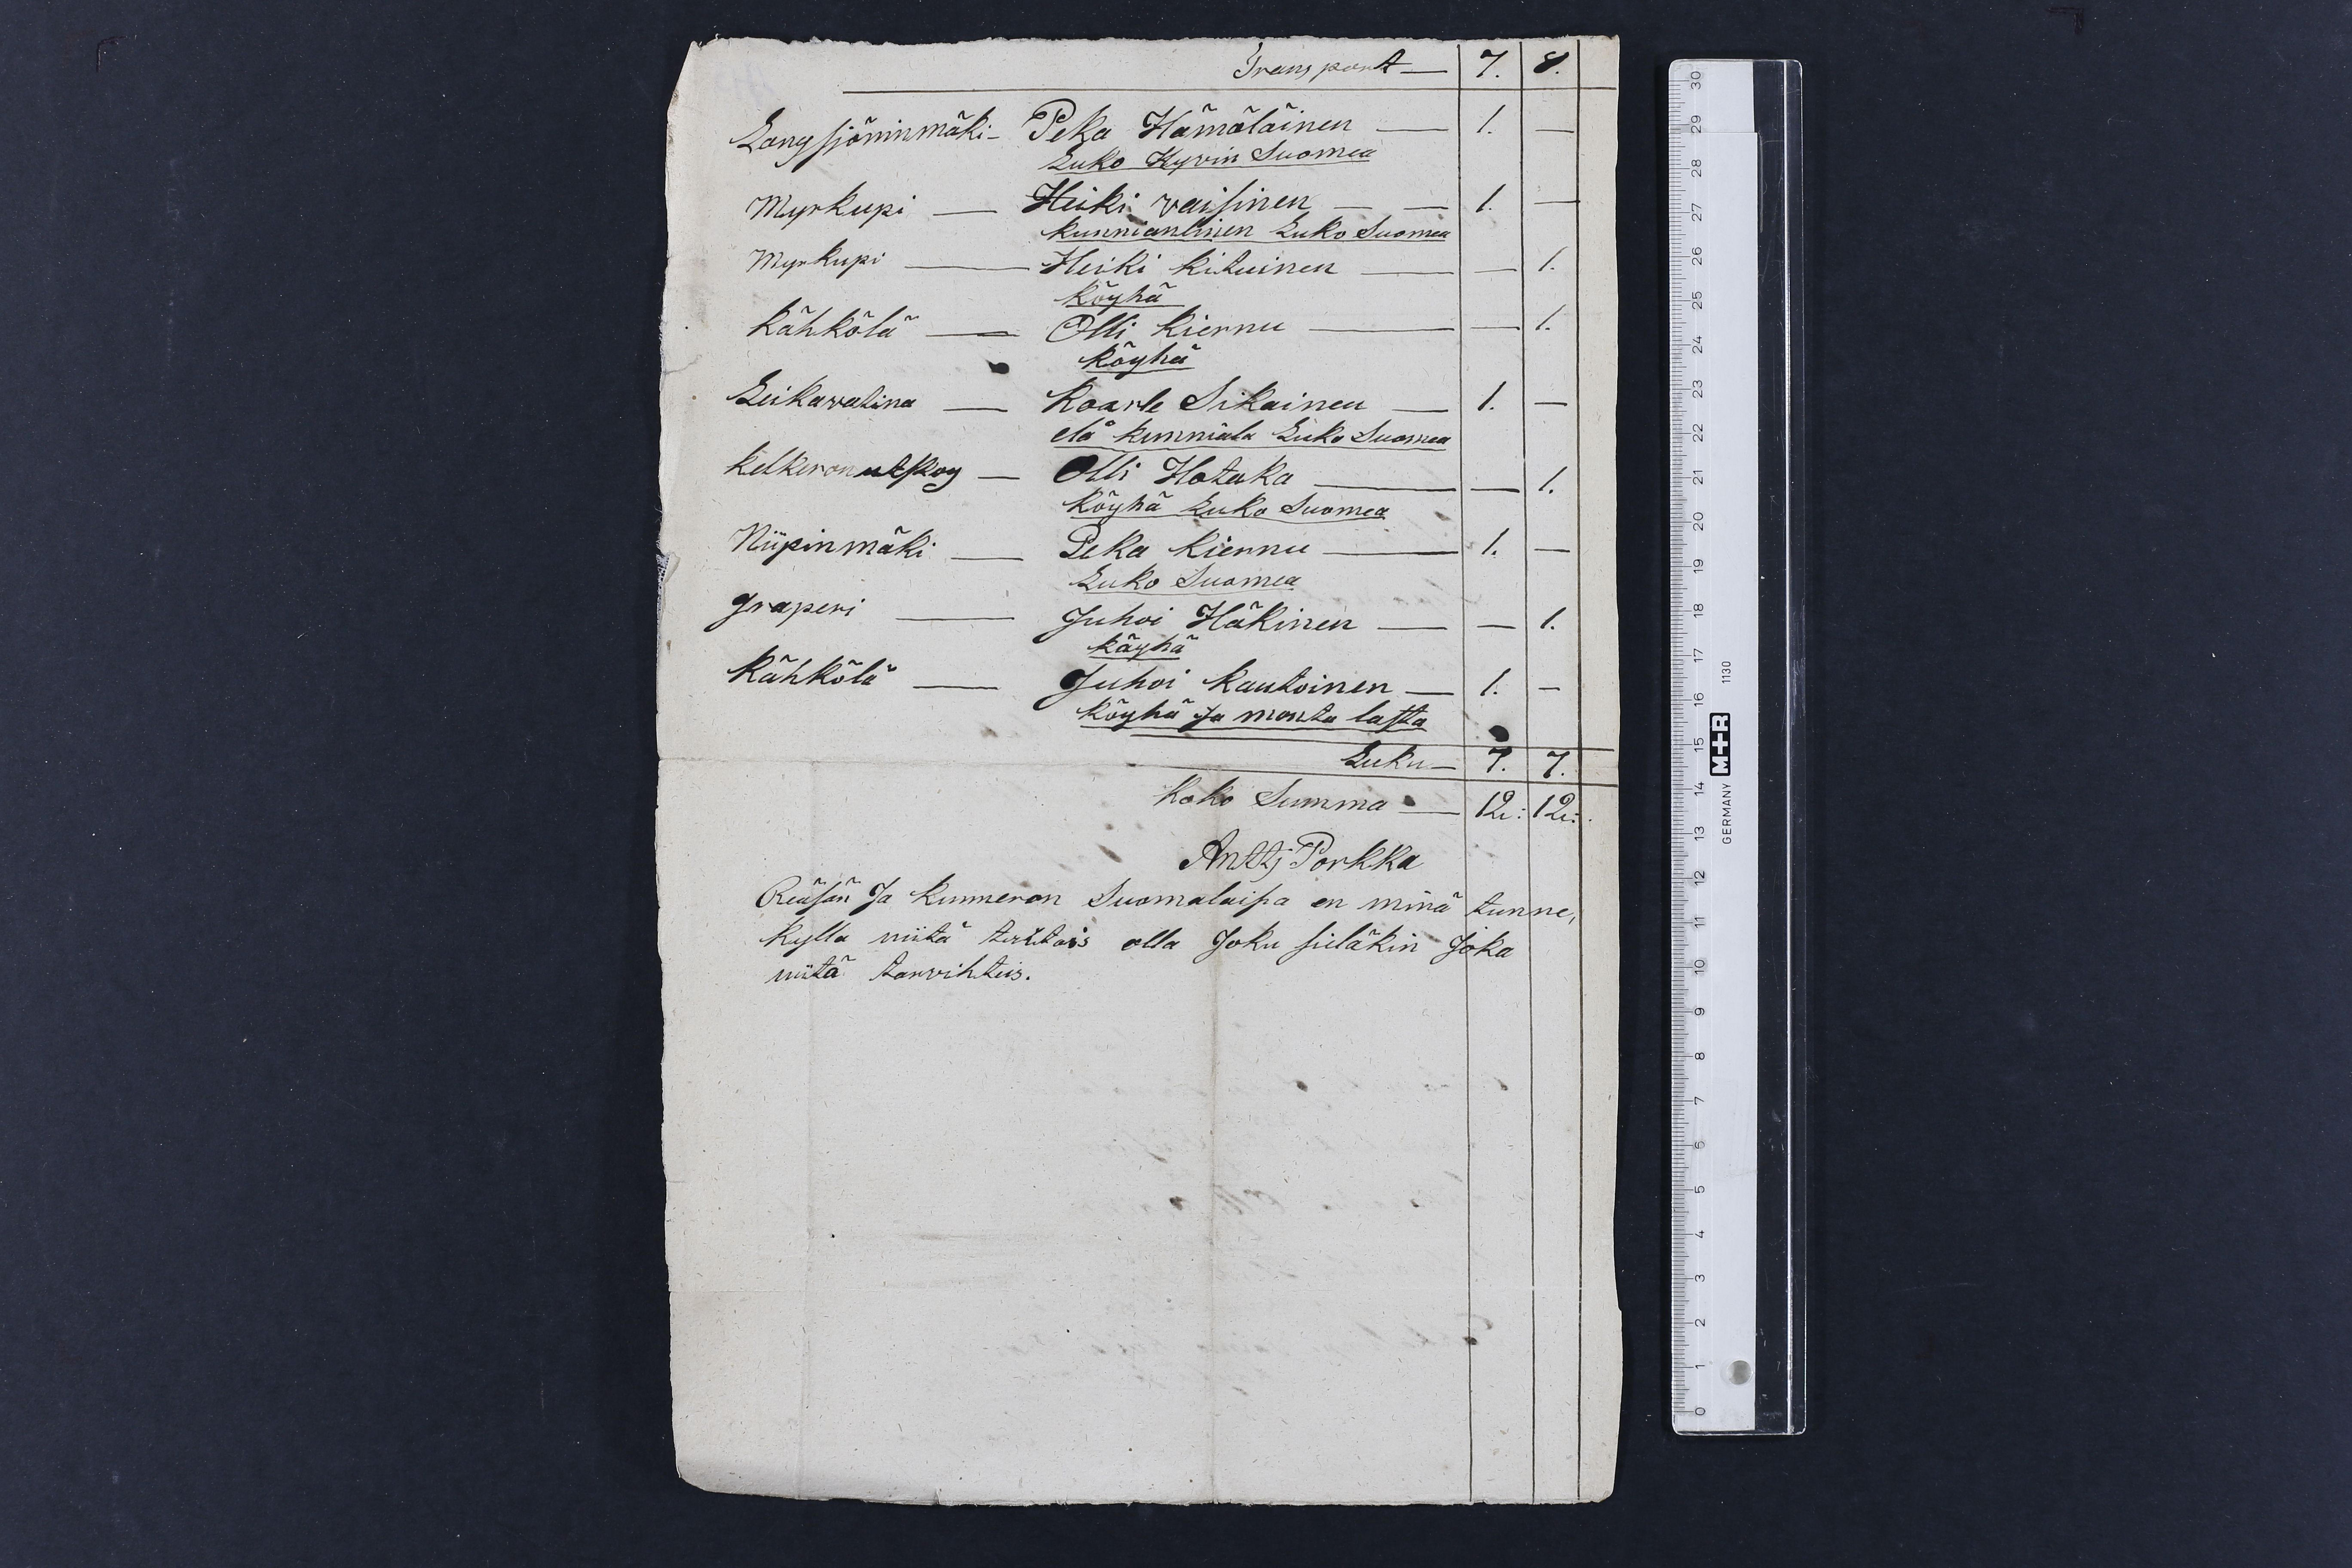 Transport — 7. 8.
Langsjöninmäki - Peka Hämäläinen — 1. —
Luko Hyvin Suomea
Myrkupi — Heiki vaisinen — — 1. —
kunnianlinen Luko Suomea
Myrkupi — Heiki kituinen — — 1.
köyhä
kähkölä — Olli kiernu — — 1.
köyhä
Leikavatina — Kaarle Sikainen — 1. —
elä kunniala Luko Suomea
kelkeron utskog — Olli Hotaka — — 1.
köyhä Luko Suomea
Niipinmäki — Peka kiernu — 1. —
Luko Suomea
graperi — Juhoi Häkinen — — 1.
käyhä
Kähkölä — Juhoi kautoinen — 1. —
köyhä Ja monta lasta
Luku — 7. 7.
Koko Summa — 12: 12:
Antti Porkka
Reäsän Ja kumeron Suomalaisa en minä tunne,
kylla niitä taittais olla Joku sieläkin Joka
niitä tarvihteis.
30 29 28 27 26 25 24 23 22 21 20 19 18 17 16 15 14 13 12 11 10 9 8 7 6 5 4 3 2 1 0
GERMANY M+R 1130